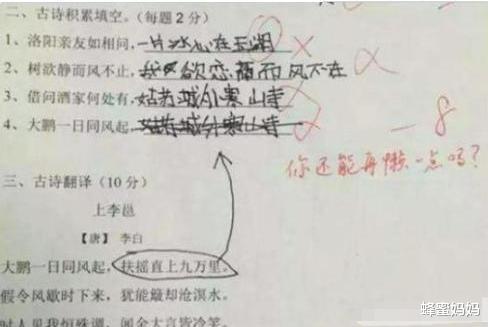 二、古诗积累填空。(每题2分)
1、洛阳亲友如相问,一片冰心在玉湖
2、树欲静而风不止,我欲恋而风不在
3、借问酒家何处有,姑苏城外寒山寺
4、大鹏一日同风起,姑苏城外寒山寺
-8
你还能再懒一点吗?
三、古诗翻译(10分)
上李邕
【唐】 李白
大鹏一日同风起,扶摇直上九万里。
假令风歇时下来,犹能簸却沧溟水。
时人见我恒殊调,闻余大言皆冷笑。
蜂蜜妈妈